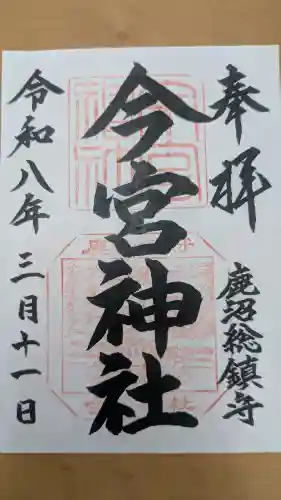 奉拝
鹿沼総鎮守
今宮神社
令和八年
三月十一日